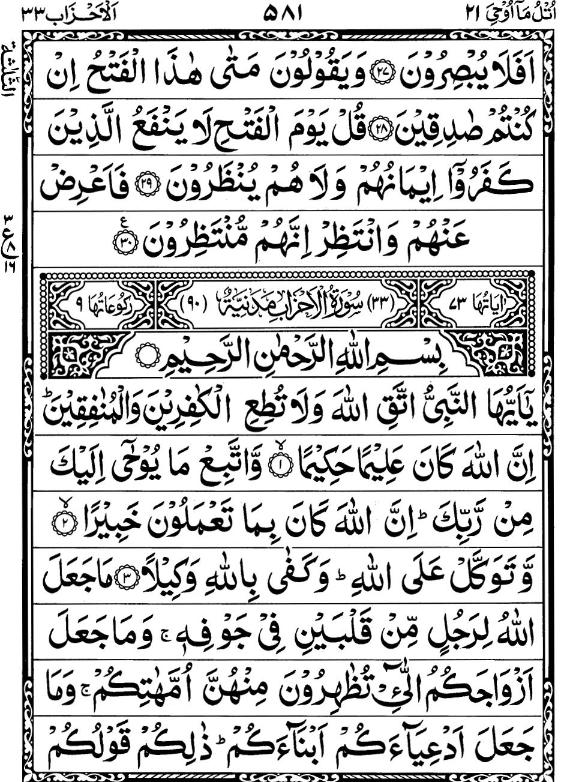 اُتْلُ مَآ اُوْحِیَ ٢١
٥٨١
اَلْاَحْزَاب ٣٣
اَفَلَا يُبْصِرُوْنَ ﴿٢٧﴾ وَيَقُوْلُوْنَ مَتٰى هٰذَا الْفَتْحُ اِنْ
كُنْتُمْ صٰدِقِيْنَ ﴿٢٨﴾ قُلْ يَوْمَ الْفَتْحِ لَا يَنْفَعُ الَّذِيْنَ
كَفَرُوْٓا اِيْمَانُهُمْ وَلَا هُمْ يُنْظَرُوْنَ ﴿٢٩﴾ فَاَعْرِضْ
عَنْهُمْ وَانْتَظِرْ اِنَّهُمْ مُّنْتَظِرُوْنَ ﴿٣٠﴾ ع
اٰيَاتُهَا ٧٣ (٣٣) سُوْرَةُ الْاَحْزَابِ مَدَنِيَّةٌ (٩٠) رُكُوْعَاتُهَا ٩
بِسْمِ اللّٰهِ الرَّحْمٰنِ الرَّحِيْمِ
يٰٓاَيُّهَا النَّبِيُّ اتَّقِ اللّٰهَ وَلَا تُطِعِ الْكٰفِرِيْنَ وَالْمُنٰفِقِيْنَ ؕ
اِنَّ اللّٰهَ كَانَ عَلِيْمًا حَكِيْمًا ﴿١﴾ۙ وَّاتَّبِعْ مَا يُوْحٰٓى اِلَيْكَ
مِنْ رَّبِّكَ ؕ اِنَّ اللّٰهَ كَانَ بِمَا تَعْمَلُوْنَ خَبِيْرًا ﴿٢﴾ۙ
وَّتَوَكَّلْ عَلَى اللّٰهِ ؕ وَكَفٰى بِاللّٰهِ وَكِيْلًا ﴿٣﴾ مَا جَعَلَ
اللّٰهُ لِرَجُلٍ مِّنْ قَلْبَيْنِ فِيْ جَوْفِهٖ ۚ وَمَا جَعَلَ
اَزْوَاجَكُمُ الّٰٓـِٔيْ تُظٰهِرُوْنَ مِنْهُنَّ اُمَّهٰتِكُمْ ۚ وَمَا
جَعَلَ اَدْعِيَآءَكُمْ اَبْنَآءَكُمْ ؕ ذٰلِكُمْ قَوْلُكُمْ
الثلثة
٣
ع
٨
١٦